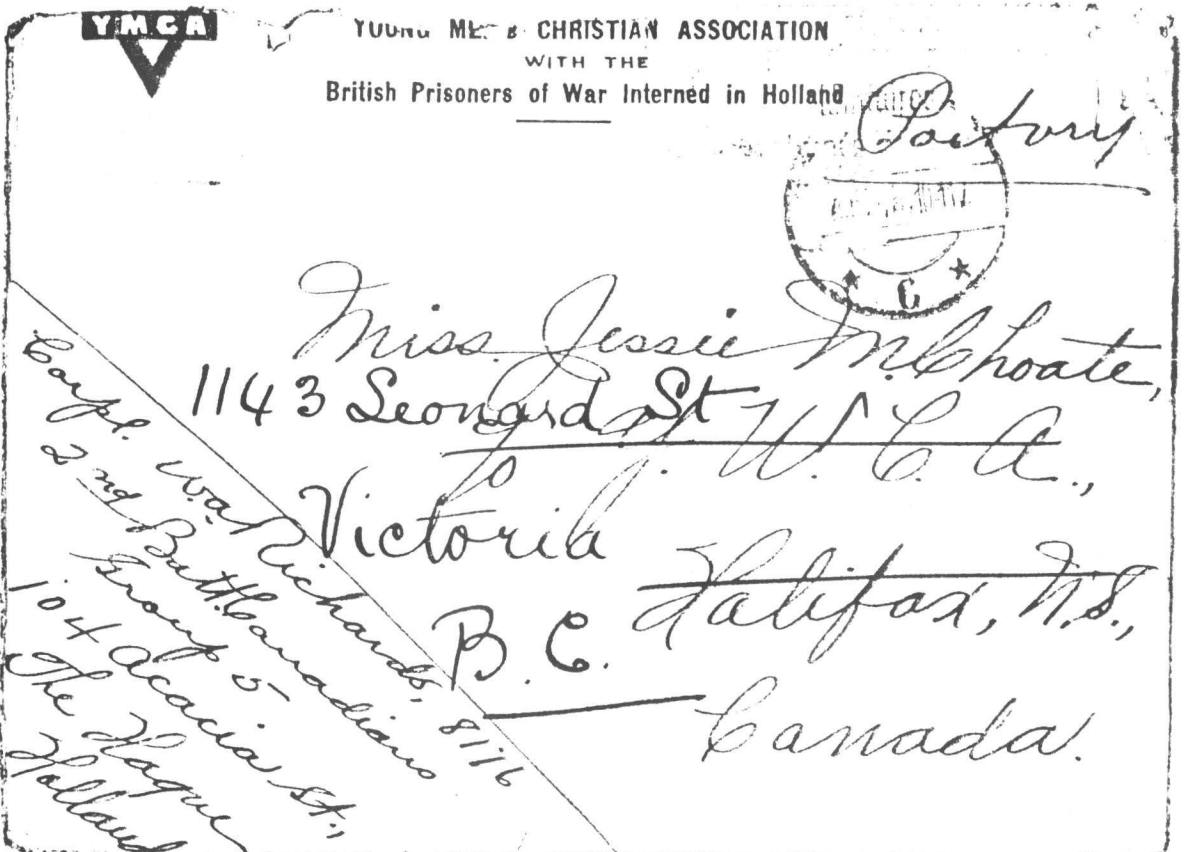 YMCA
YOUNG MEN'S CHRISTIAN ASSOCIATION
WITH THE
British Prisoners of War Interned in Holland
C
Miss. Jessie M. Choate,
1143 Leonard St
Y. W. C. A.,
Victoria
Halifax, N.S.,
B. C.
Canada.
Corpl. W.A. Richards, 8116
2nd Batt. Canadians
Group 5
104 Acacia St.,
The Hague
Holland